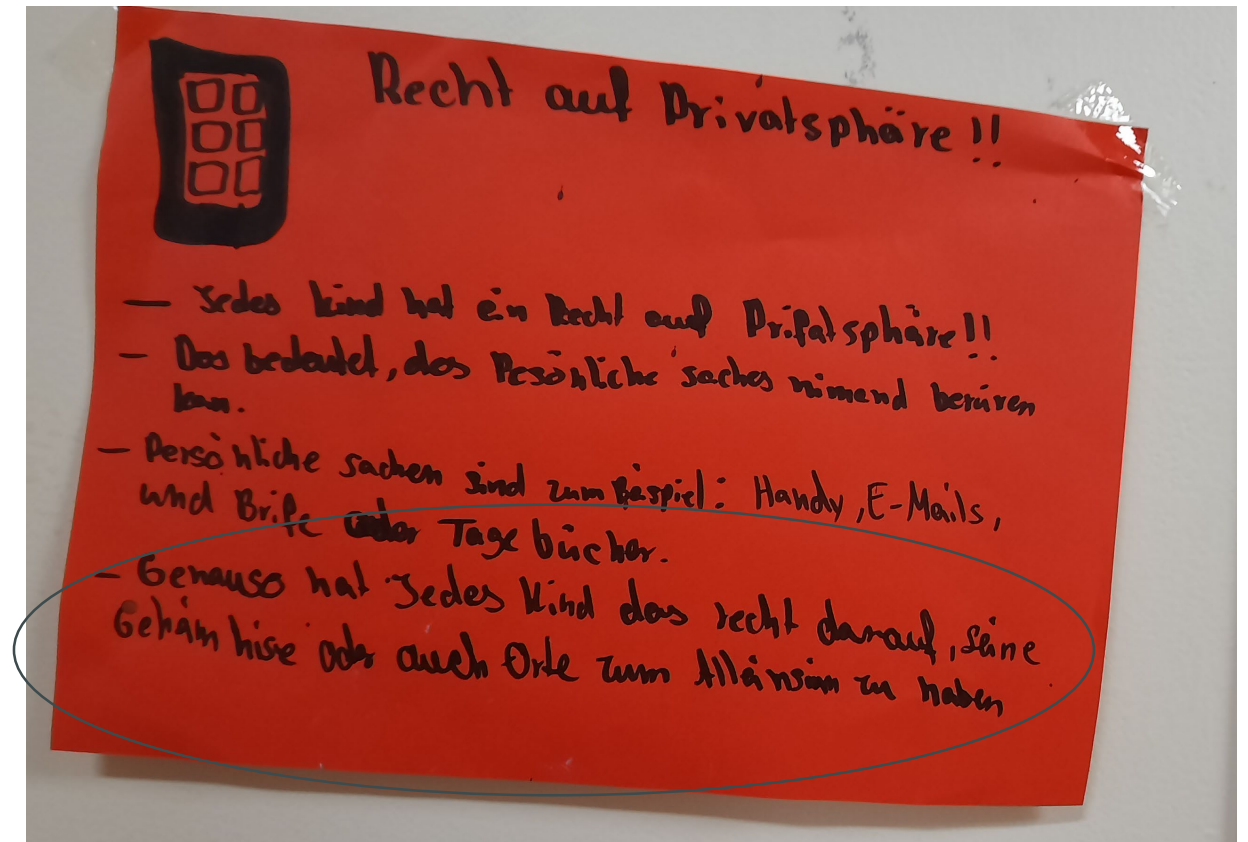 Recht auf Privatsphäre!!
– Jedes kind hat ein Recht auf Prifatsphäre!!
– Das bedeutet, das Pesönliche saches nimand berüren
kan.
– Persönliche sachen sind zum Beispiel: Handy, E-Mails,
und Brife oder Tage bücher.
– Genauso hat Jedes Kind das recht darauf, seine
Gehäimnise oder auch Orte zum Alleinsein zu haben